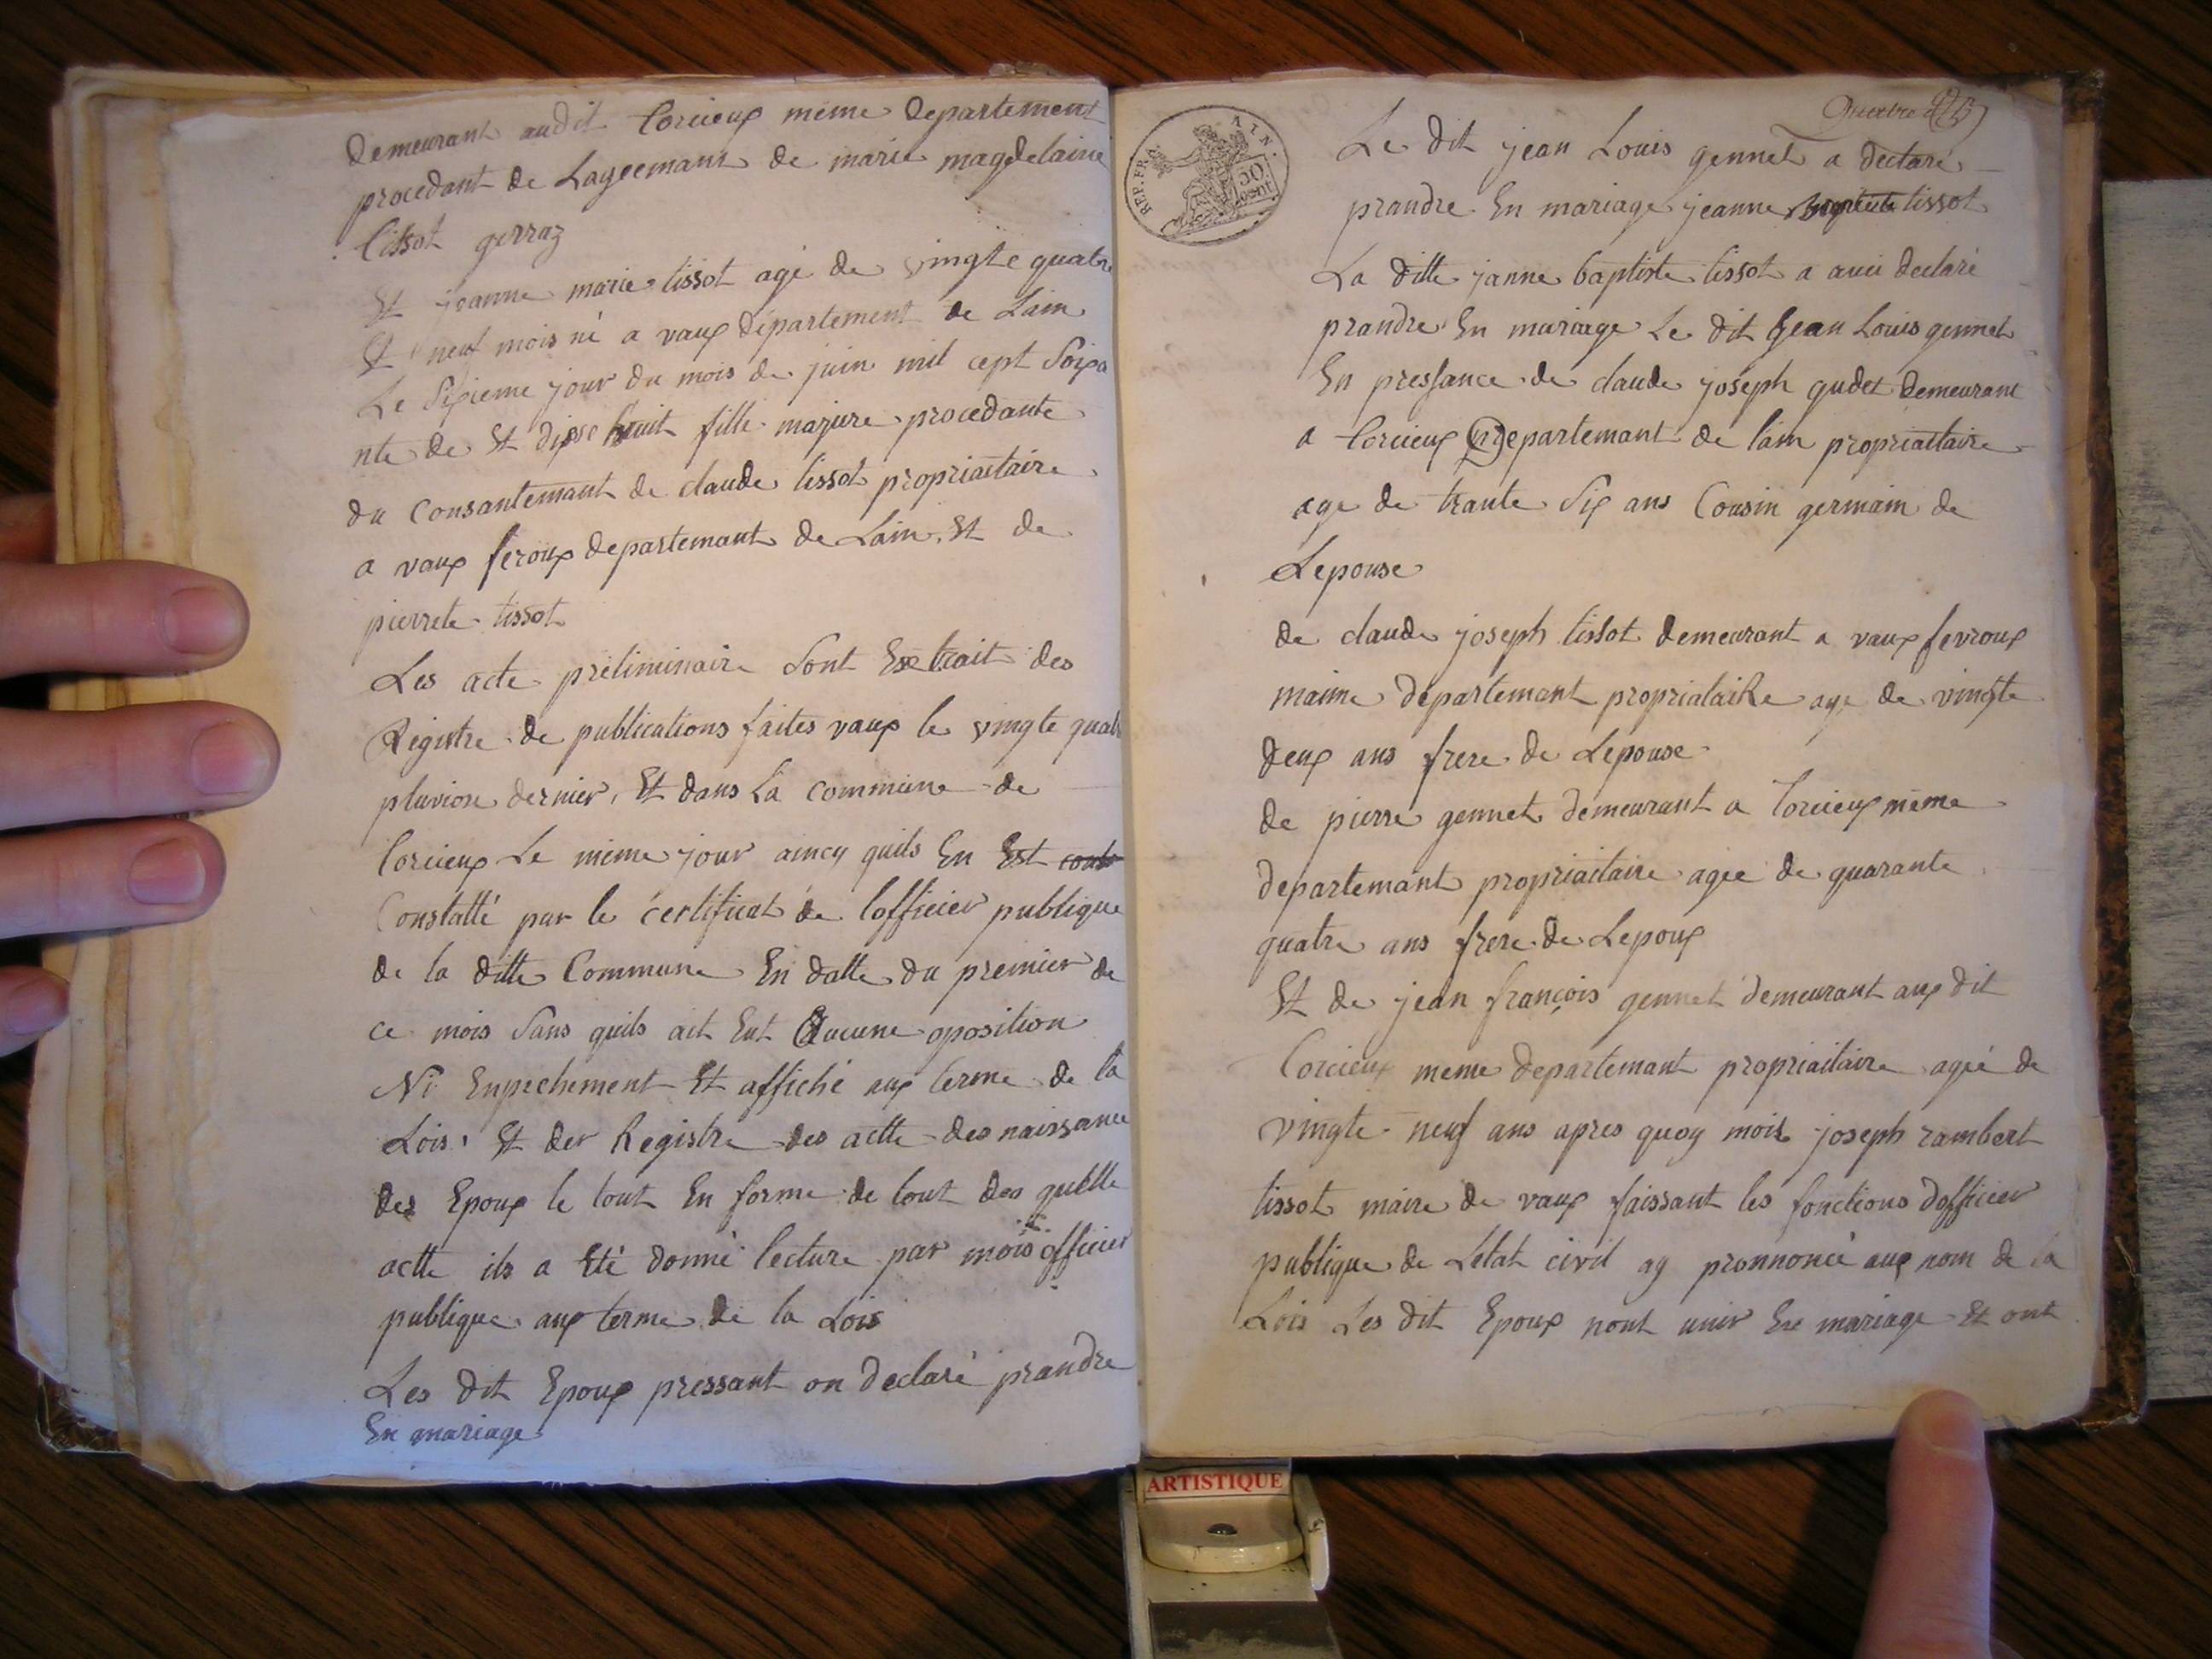 demeurant audit torcieux meme departement
procedant de Lagreemant de marie magdelaine
tissot gerraz
Et jeanne marie tissot agé de vingte quatre
Et neuf mois né a vaux département de Lain
Le Sixieme jour du mois de juin mil cept Soixa
nte de Et dixse huit fille majure procedante
du Consantemant de claude tissot propriaitaire
a vaux fevroux departemant de Lain. Et de
pierrete tissot
Les acte préliminaire Sont Extrait des
Registre de publications faites vaux le vingte quatre
pluviose dernier, Et dans La commune de
torcieux Le méme jour aincy quils En Est
Constatté par le certificat de lofficier publique
de la ditte Commune En datte du premier de
ce mois Sans quils ait Eut Aucune oposition
Ni Enpechement Et affiché aux terme de la
Lois, Et der Registre des actte des naissance
des Epoux le tout En forme de tout des quelle
actte ils a Eté donné lecture par mois officier
publique aux terme de la Lois
Les dit Epoux pressant on declaré prandre
En mariage
REP. FRA. AIN.
50 cent
Le dit jean Louis gennet a declaré
prandre En mariage jeanne tissot
La ditte janne baptiste tissot a auci declaré
prandre En mariage Le dit Jean Louis gennet
En pressance de claude joseph gudet demeurant
a torcieux Departemant de lain propriaitaire
age de trante Six ans Cousin germain de
Lepouse
de claude joseph tissot demeurant a vaux fevroux
maime département propriataire age de vingte
deux ans frere de Lepouse
de pierre gennet demeurant a torcieux méme
departemant propriaitaire agée de quarante
quatre ans frere de Lepoux
Et de jean françois gennet demeurant aux dit
torcieux meme departemant propriaitaire ageé de
vingte neuf ans apres quoy mois joseph rambert
tissot maire de vaux faissant les fonctions dofficier
publique de Létat civil ay pronnoncé aux nom de la
Lois Les dit Epoux nont unir En mariage Et ont
ARTISTIQUE